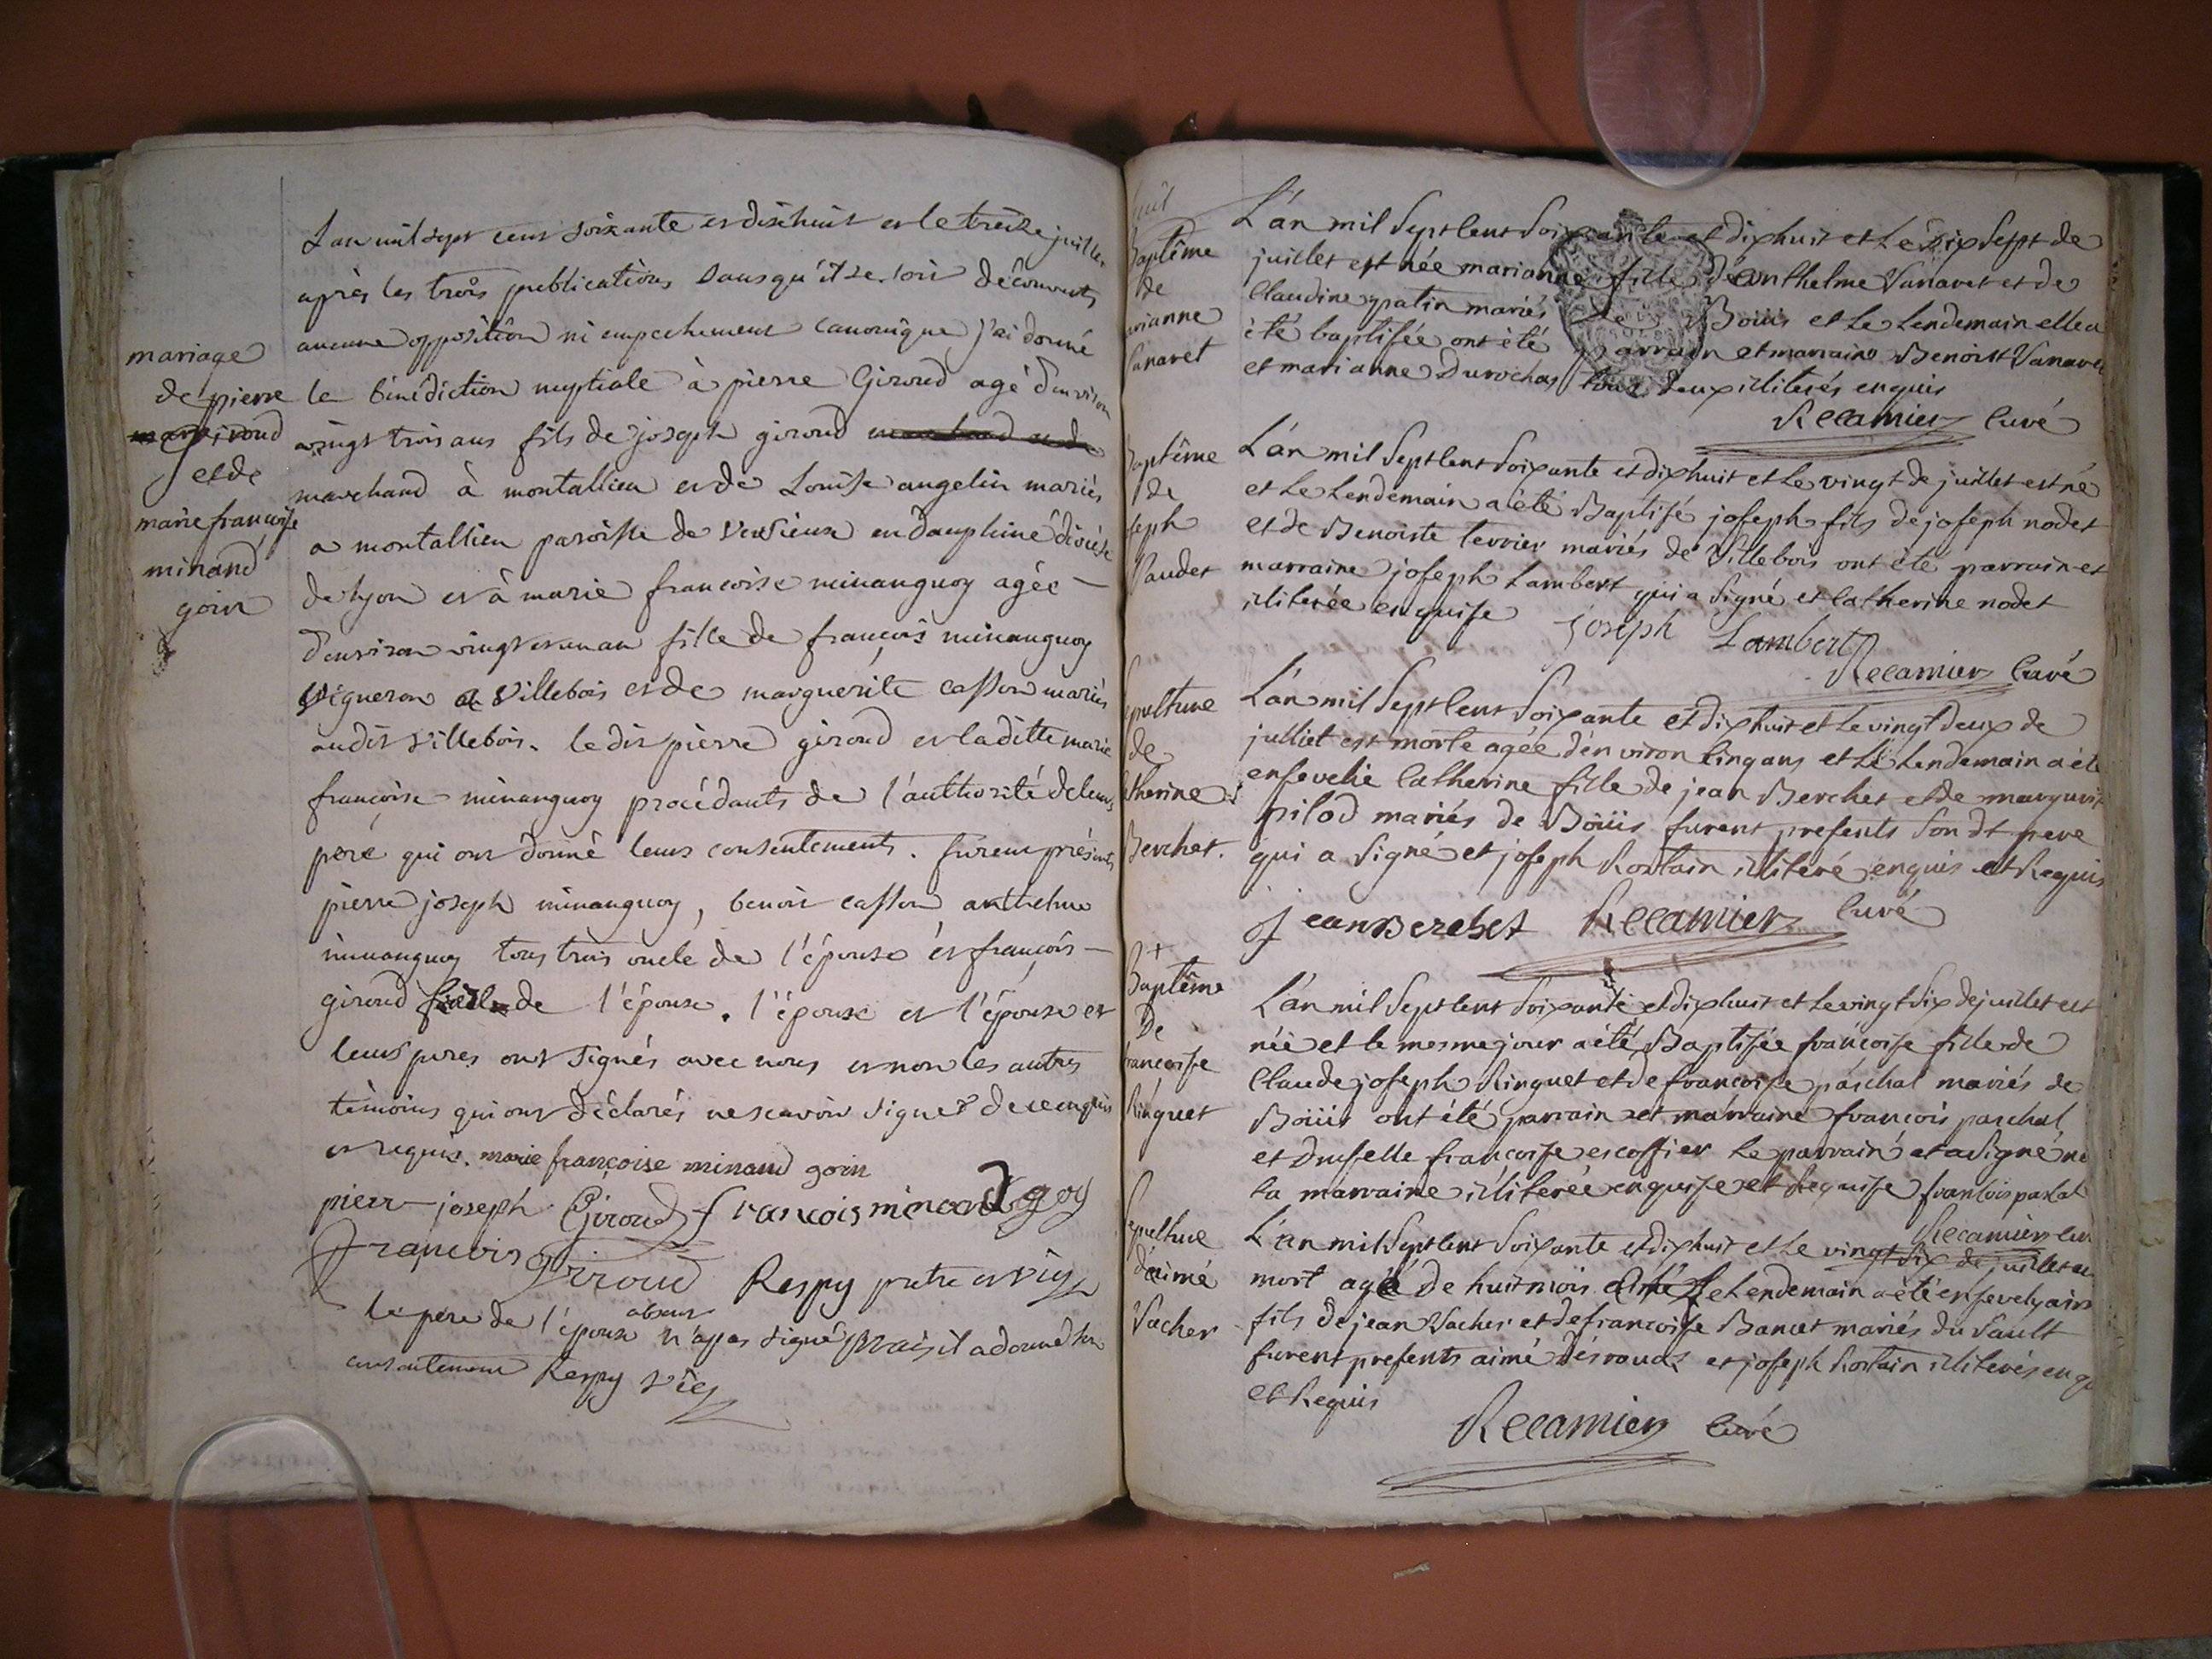 mariage
de pierre
giroud
et de
marie françoise
minand
goin
L'an mil sept cent soixante et dixhuit et le treize juillet
après les trois publications sans qu'il se soit découverts
aucune opposition ni empechement canonique j'ai donné
la bénédiction nuptiale à pierre Giroud agé d'environ
vingt trois ans fils de joseph giroud
marchand à montallieu et de Louise angelin mariés
a montallieu paroisse de Versieux en dauphiné diocèse
de lyon et à marie françoise minanguoy agée
d'environ vingt et un an fille de françois minanguoy
Vigneron a Villebois et de marguerite casson mariés
audit Villebois. le dit pierre giroud et la ditte marie
françoise minanguoy procédants de l'authorité de leurs
père qui ont donné leurs consentements. furent présents
pierre joseph minanguoy, benoit casson anthelme
minanguoy tous trois oncle de l'épouse et françois
giroud de l'épouse. l'épouse et l'épouse et
leurs peres ont signés avec nous et non les autres
témoins qui ont déclarés ne scavoir signer de ce enquis
et requis. marie françoise minand goin
pierr joseph Giroud françois minand goy
françois Giroud Respy pretre et vic
le pere de l'épouse absent n'a pas signé mais il a donné son
consentement Respy vic
huit
Baptême
de
marianne
Vanaret
L'an mil Sept Cent Soixante et dixhuit et Le Dix Sept de
juillet est née marianne fille d'anthelme Vanaret et de
Claudine gratin mariés de Boüis et Le Lendemain elle a
été baptisée ont été parrain et marraine Benoist Vanaret
et marianne Durochas tous deux illiterés enquis
Récamier Curé
Baptême
de
joseph
Naudet
L'an mil Sept Cent Soixante et dixhuit et Le vingt de juillet est né
et Le Lendemain a été Baptisé joseph fils de joseph nodet
et de Benoiste terrier mariés de Villebois ont été parrain et
marraine joseph Lambert qui a signé et Catherine nodet
illiterée enquise joseph Lambert
Récamier Curé
Sepulture
de
Catherine
Berchet.
L'an mil Sept Cent Soixante et dixhuit et Le vingt deux de
julliet est morte agée d'environ Cinq ans et Le Lendemain a été
ensevelie Catherine fille de jean Berchet et de marguerite
pilod mariés de Boüis furent presents Son dt pere
qui a Signé et joseph Rostain illiteré enquis et Requis
jean Berchet Récamier Curé
+
Baptême
De
françoise
Ringuet
L'an mil Sept Cent Soixante et dixhuit et Le vingt Six de juillet est
née et le mesme jour a été Baptisée françoise fille de
Claude joseph Ringuet et de françoise paschal mariés de
Boüis ont été parrain et marraine françois paschal
et Druselle françoise escoffier Le parrain et a Signé ne
La marraine illiterée enquise et Requise francois pascal
Récamier Curé
Sepulture
d'aimé
Vacher
L'an mil Sept Cent Soixante et dixhuit et Le vingt Six de juillet est
mort agé De huit mois et Le Lendemain a été ensevely aimé
fils de jean Vacher et de françoise Bancet mariés du Sault
furent presents aimé Desroud et joseph Rostain illiterés enquis
et Requis
Récamier Curé